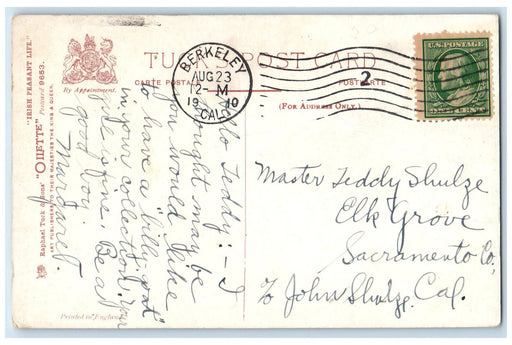 TUCK'S POST CARD
CARTE POSTALE
POSTKARTE
(FOR ADDRESS ONLY.)
By Appointment.
"IRISH PEASANT LIFE."
Postcard 9653.
Raphael Tuck & Sons' "OILETTE"
ART PUBLISHERS TO THEIR MAJESTIES THE KING & QUEEN.
Printed in England.
BERKELEY
AUG 23
2-M
1910
CAL.
2
U.S. POSTAGE
ONE CENT
Hello Teddy:- I
thought may be
you would like
to have a "billy goat"
in your collection.
fine. Be a
good boy.
Margaret.
Master Teddy Shulze
Elk Grove
Sacramento Co,
℅ John Shulze, Cal.